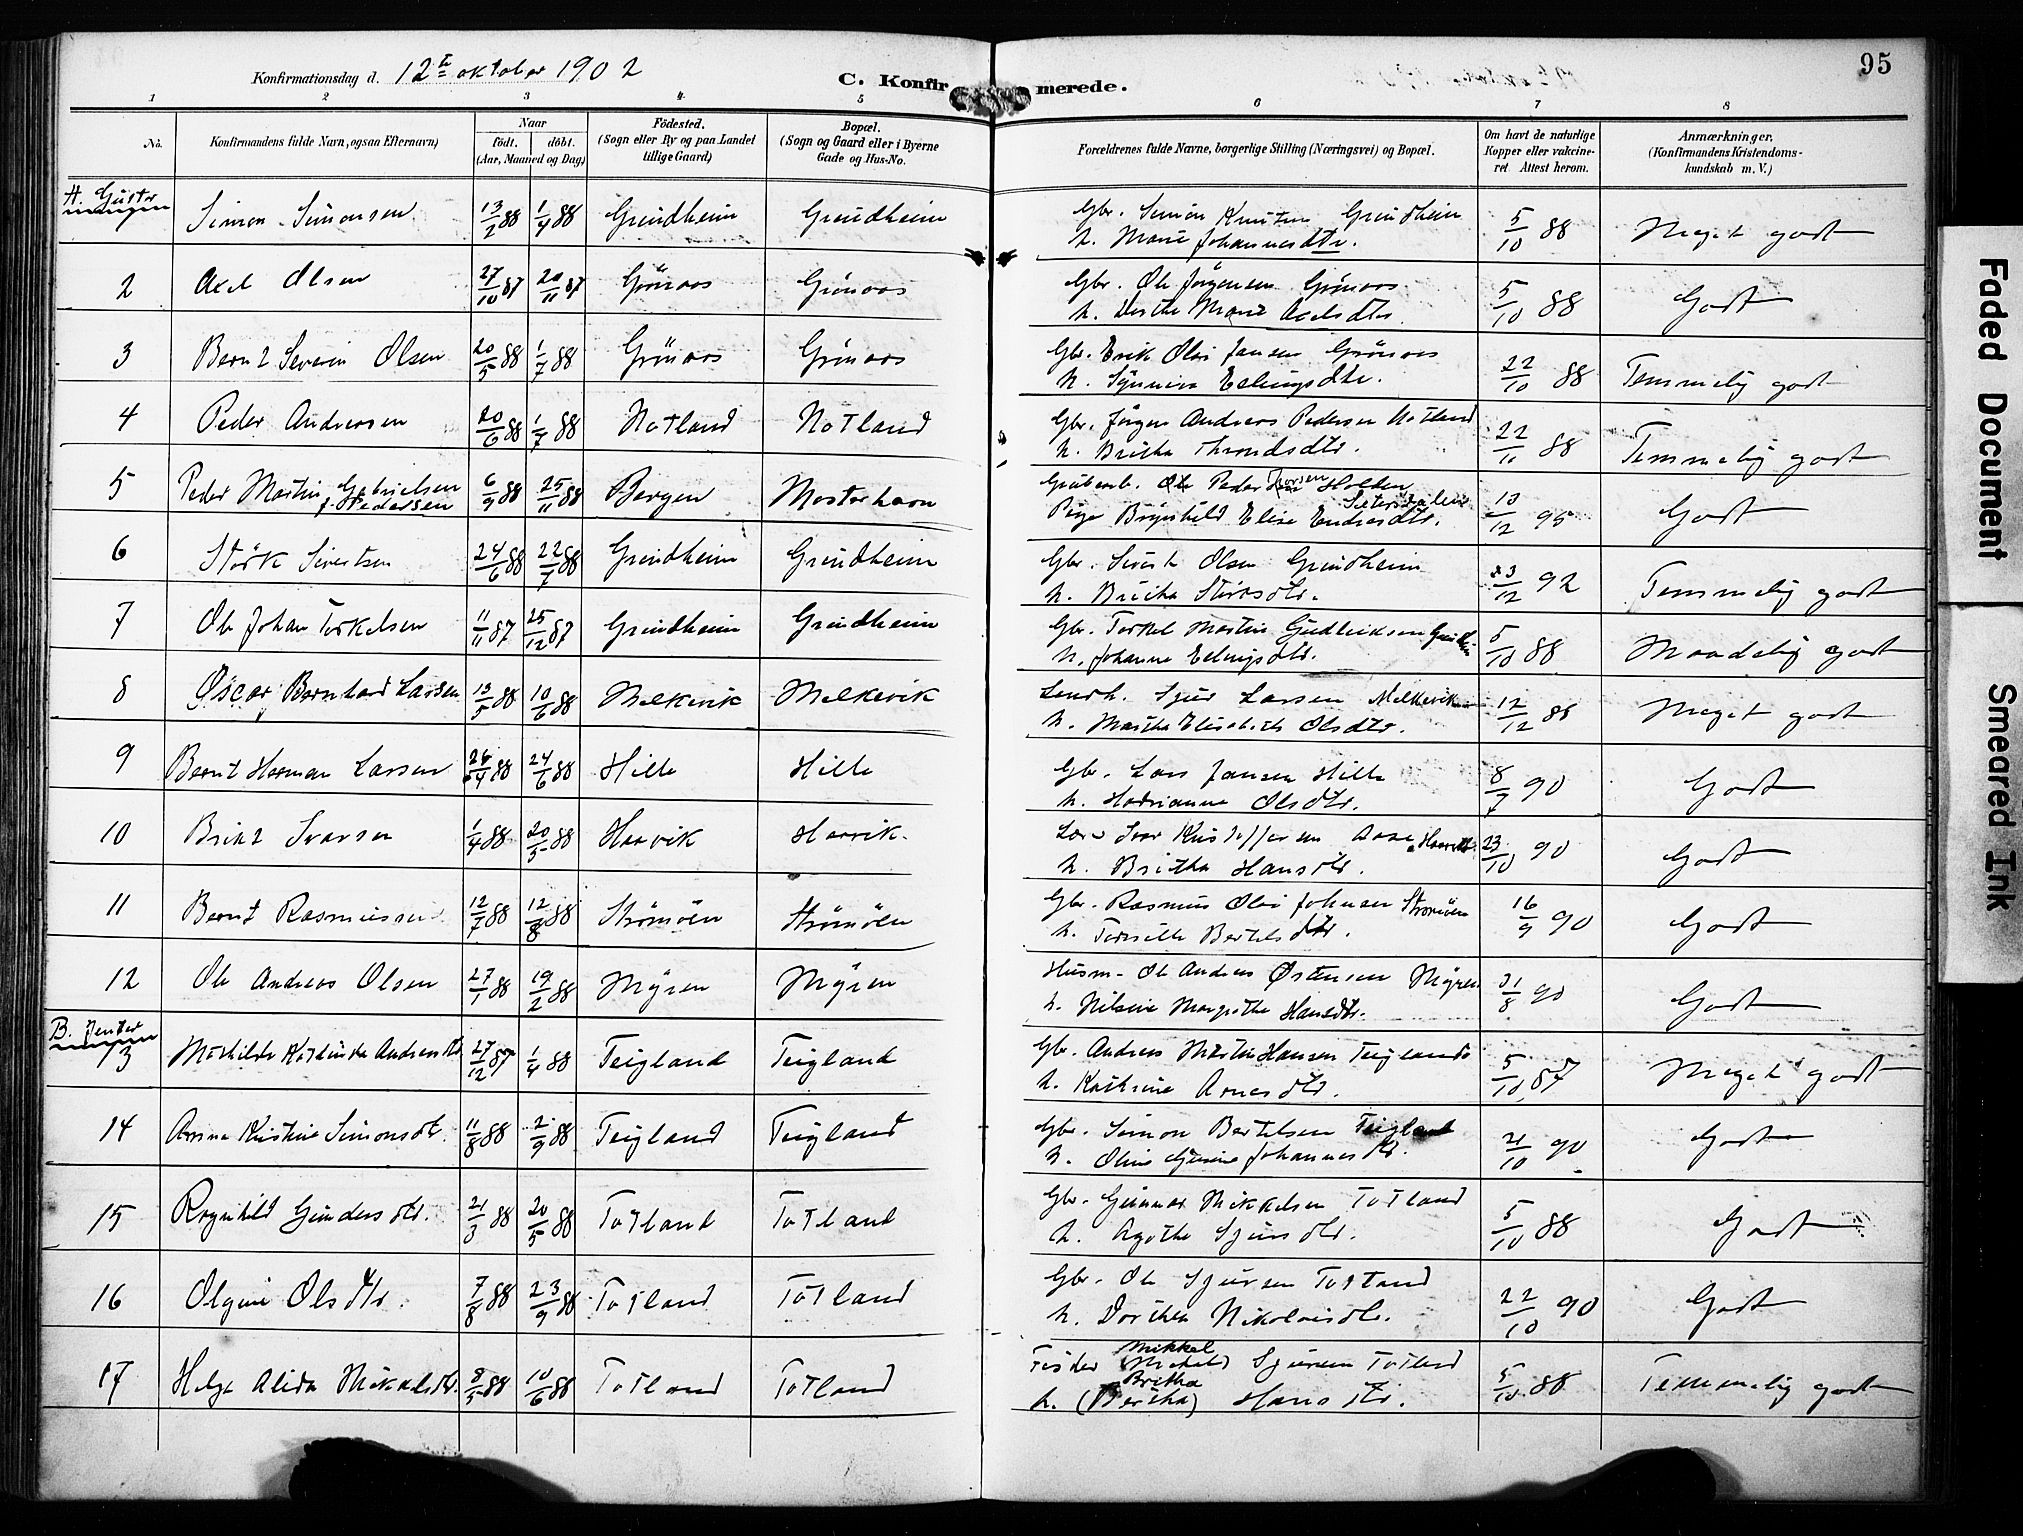 95
Konfirmationsdag d. 12te oktober 1902
C. Konfirmerede.
1 2 3 4 5 6 7 8
No.
Konfirmandens fulde Navn, ogsaa Efternavn)
Naar
födt. döbt.
(Aar, Maaned og Dag)
Födested.
(Sogn eller By og paa Landet
tillige Gaard)
Bopæl.
(Sogn og Gaard eller i Byerne
Gade og Hus-No.
Forældrenes fulde Navne, borgerlige Stilling (Næringsvei) og Bopæl.
Om havt de naturlige
Kopper eller vakcine-
ret Attest herom.
Anmærkninger.
(Konfirmandens Kristendoms-
kundskab m. V.)
Simon Simonsen 13/2 88 1/4 88 Grindheim Grindheim Gbr. Simon Knutsen Grindheim
h. Marie Johannesdtr. 5/10 88 Meget godt
2 Axel Olsen 27/10 87 20/11 87 Grönaas Grönaas Gbr. Ole Jörgensen Grönaas
h. Dorthe Marie Axelsdtr. 5/10 88 Godt
3 Bernt Severin Olsen 20/5 88 1/7 88 Grönaas Grönaas Gbr. Erik Olai Jansen Grönaas
h. Synneva Eelingsdtr. 22/10 88 Temmelig godt
4 Peder Andreasen 20/6 88 1/7 88 Notland Notland Gbr. Jörgen Andreas Pedersen Notland
h. Britha Throndsdtr. 22/10 88 Temmelig godt
5 Peder Martin Gabrielsen
Pedersen 6/9 88 25/11 88 Bergen Mosterhavn Peder Holden
Pige Brynhild Elise Endresdtr. 13/12 95 Godt
6 Störk Sivertsen 24/6 88 22/7 88 Grindheim Grindheim Gbr. Sivert Olsen Grindheim
h. Britha Störksdtr. 23/12 92 Temmelig godt
7 Ole Johan Torkelsen 11/11 87 25/12 87 Grindheim Grindheim Gbr. Torkel Martin Gudleiksen
h. Johanne Eelingsdtr. 5/10 88 Maadelig godt
8 Oscar Bernhard Larsen 13/5 88 10/6 88 Melkevik Melkevik Sjur Larsen Melkevik
h. Martha Elisabeth Olsdtr. 12/12 88 Meget godt
9 Bernt Herman Larsen 26/4 88 24/6 88 Hille Hille Gbr. Lars Jansen Hille
h. Hadrianna Olsdtr. 8/7 90 Godt
10 Brikt Ivarsen 1/4 88 20/5 88 Haavik Haavik Ivar Kristoffersen Aase
h. Britha Hansdtr. 23/10 90 Godt
11 Bernt Rasmussen 12/7 88 12/8 88 Strömöen Strömöen Gbr. Rasmus Olai Johnsen Strömöen
h. Torsille Bertelsdtr. 16/9 90 Godt
12 Ole Andreas Olsen 27/1 88 19/2 88 Myren Myren Husm. Ole Andreas Östensen Myren
h. Nilsine Margrethe Hansdtr. 31/8 90 Godt
B. Jenter
13 Mathilde Kathinka Andreasdtr 27/12 87 1/4 88 Teigland Teigland Gbr. Andreas Martin Hansen Teigland
h. Kathrine Arnesdtr. 5/10 87 Meget godt
14 Anna Kristine Simonsdtr. 11/8 88 2/9 88 Teigland Teigland Gbr. Simon Bertelsen Teigland
h. Johannesdtr. 21/10 90 Godt
15 Ragnhild Gundersdtr. 21/3 88 20/5 88 Totland Totland Gbr. Gunnar Mikkelsen Totland
h. Agathe Sjursdtr. 5/10 88 Godt
16 Olgine Olsdtr. 7/8 88 23/9 88 Totland Totland Gbr. Ole Sjursen Totland
h. Dorthea Nikolaisdtr. 22/10 90 Godt
17 Helga Alida Mikalsdtr. 8/5 88 10/6 88 Totland Totland Mikkel
(Michel) Sjursen Totland
Britha
h. (Bertha) Hansdtr. 5/10 88 Temmelig godt
Faded Document
Smeared Ink